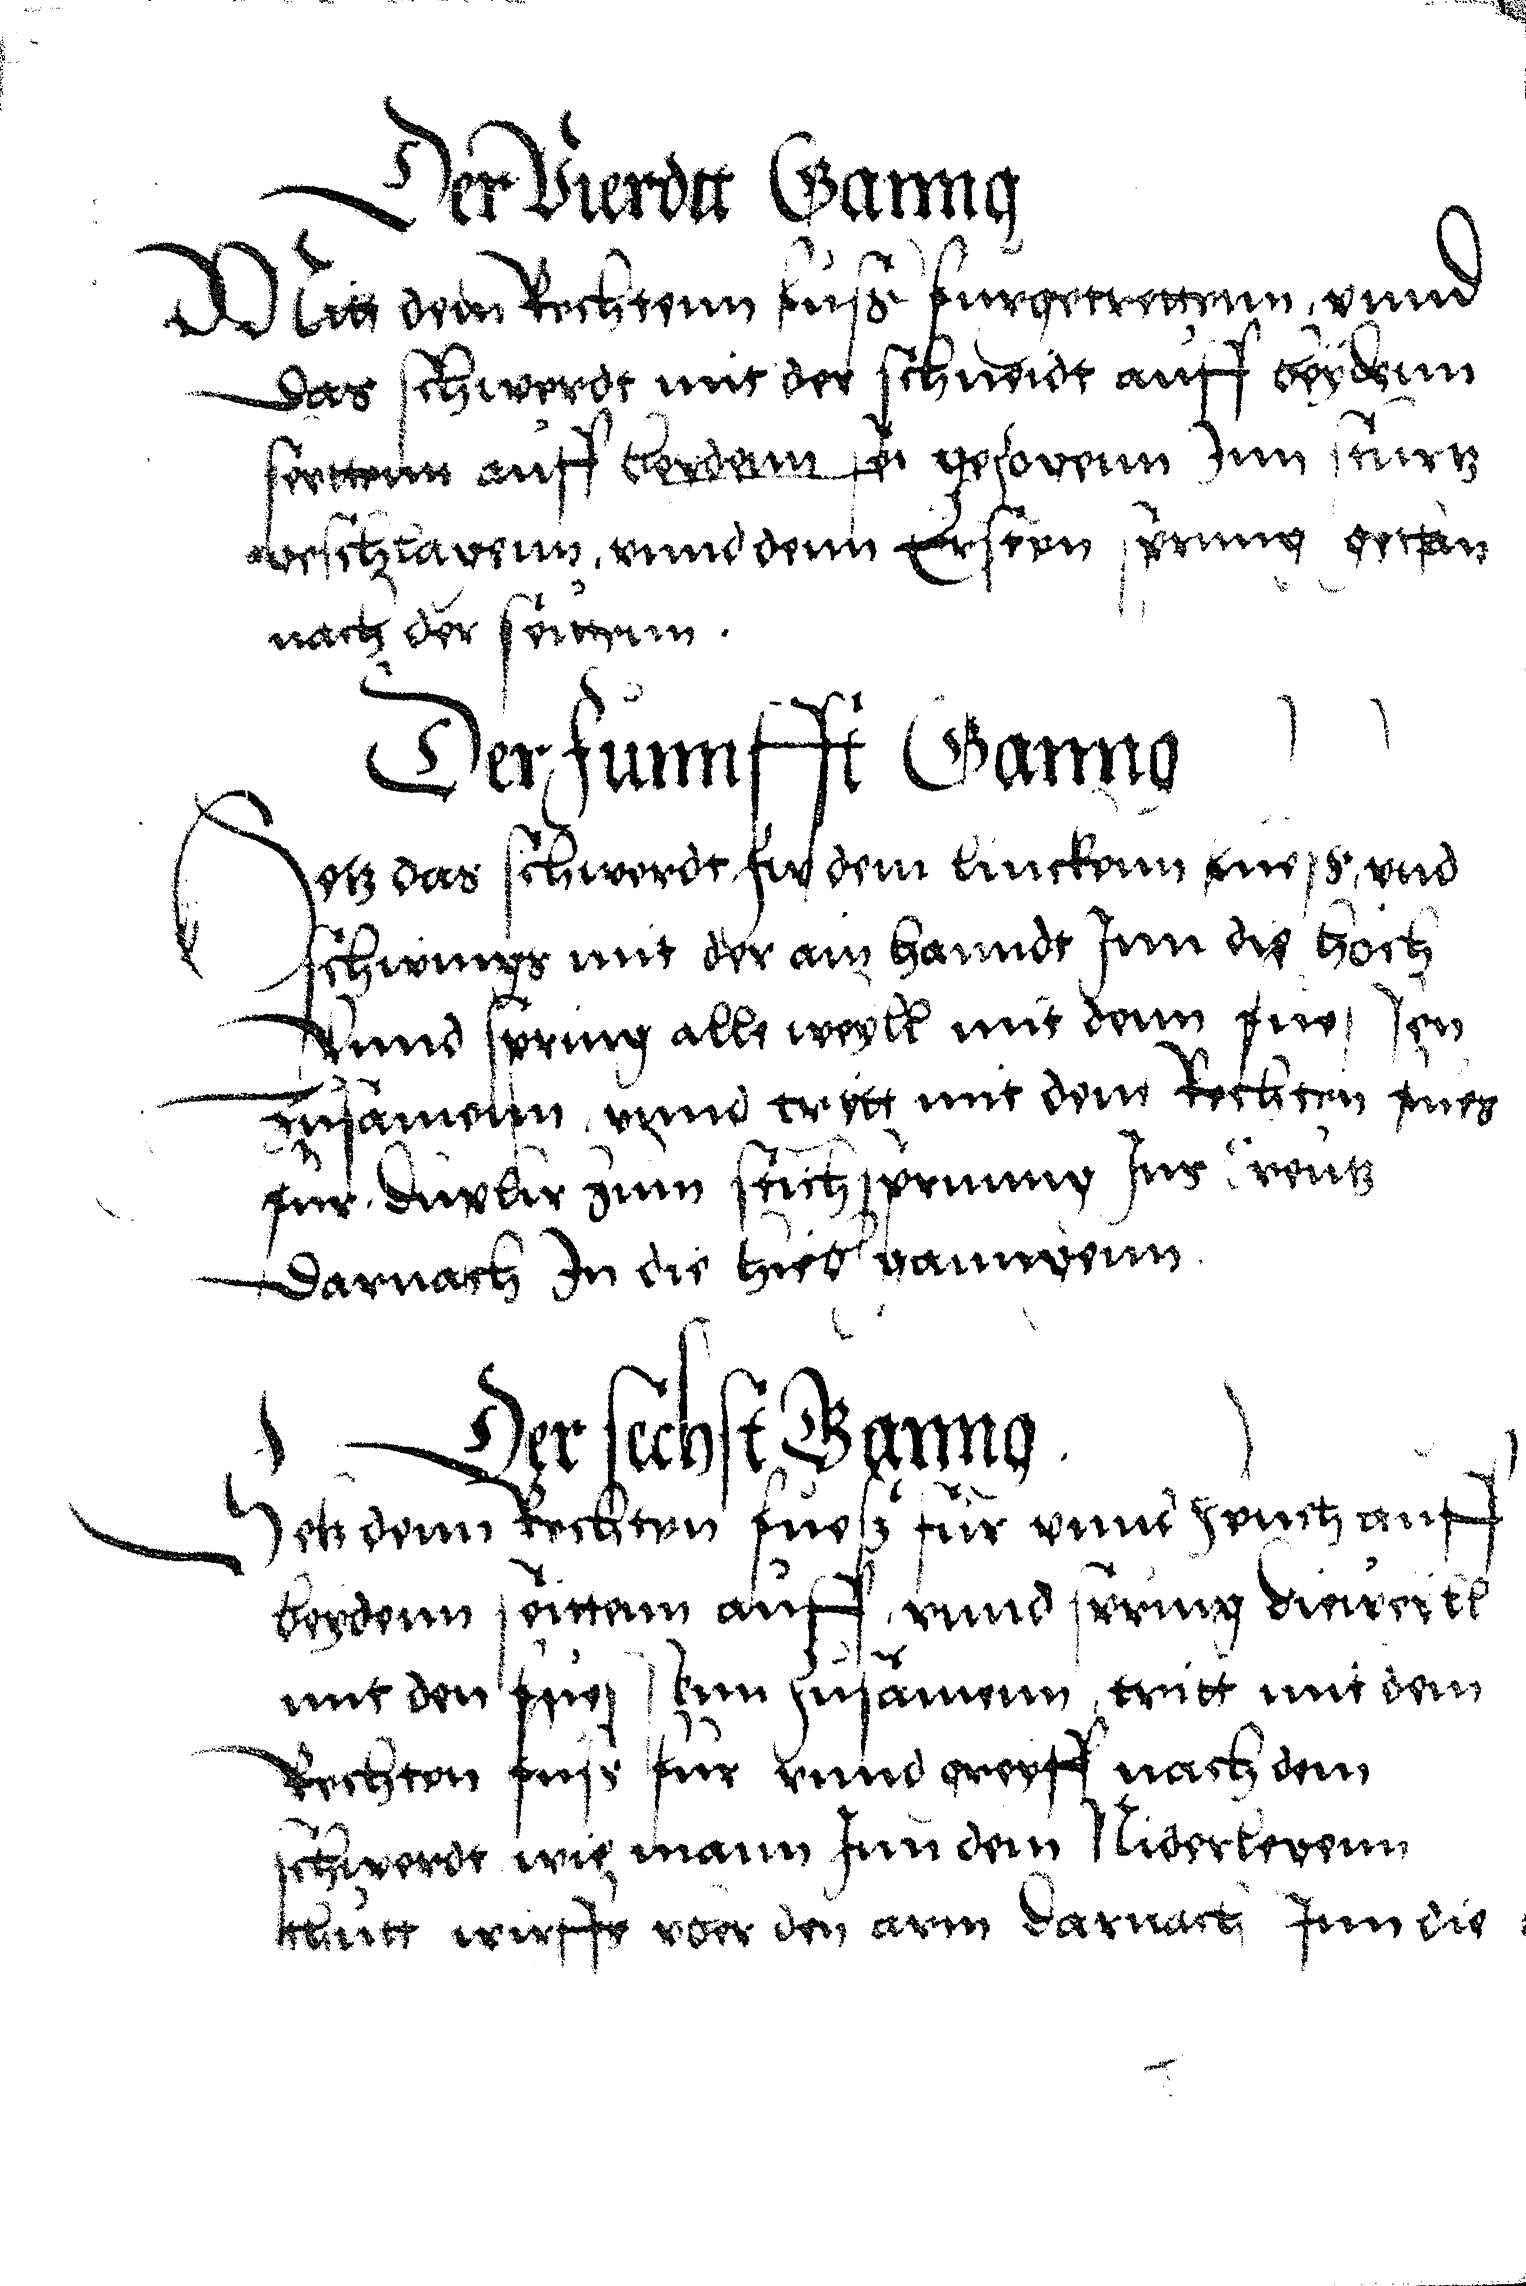 Der Vierdtt Ganng
Mitt dem Rechtenn fuß furgetrettenn, vnnd
das schwerdt mit der schneidt auff beydenn
seittenn auff beydenn gezogenn Inn sturtz
vnnd denn Ersten sprung gethan
nach der seittenn.
Der funnfft Ganng
Setz das schwerdt fur dem linckenn fueß, vnd
schwings mit der ain hanndt Inn die höch
Vnnd spring alle weyll mit denn fuessen
zusamenn, vnnd tritt mit dem Rechten fues
fur. zum stichsprunng Ins Creutz
Darnach In die hieb ganngenn.
Der sechst Ganng.
Setz denn Rechten fuess für vnnd zeuch auff
beydenn seittenn auff, vnnd spring dieweill
mit den fuessenn zusamenn, tritt mit dem
Rechten fuß für vnnd greyff nach dem
schwerdt wie mann Inn dem Niderlegenn
thutt wirffs vber den arm Darnach Inn die